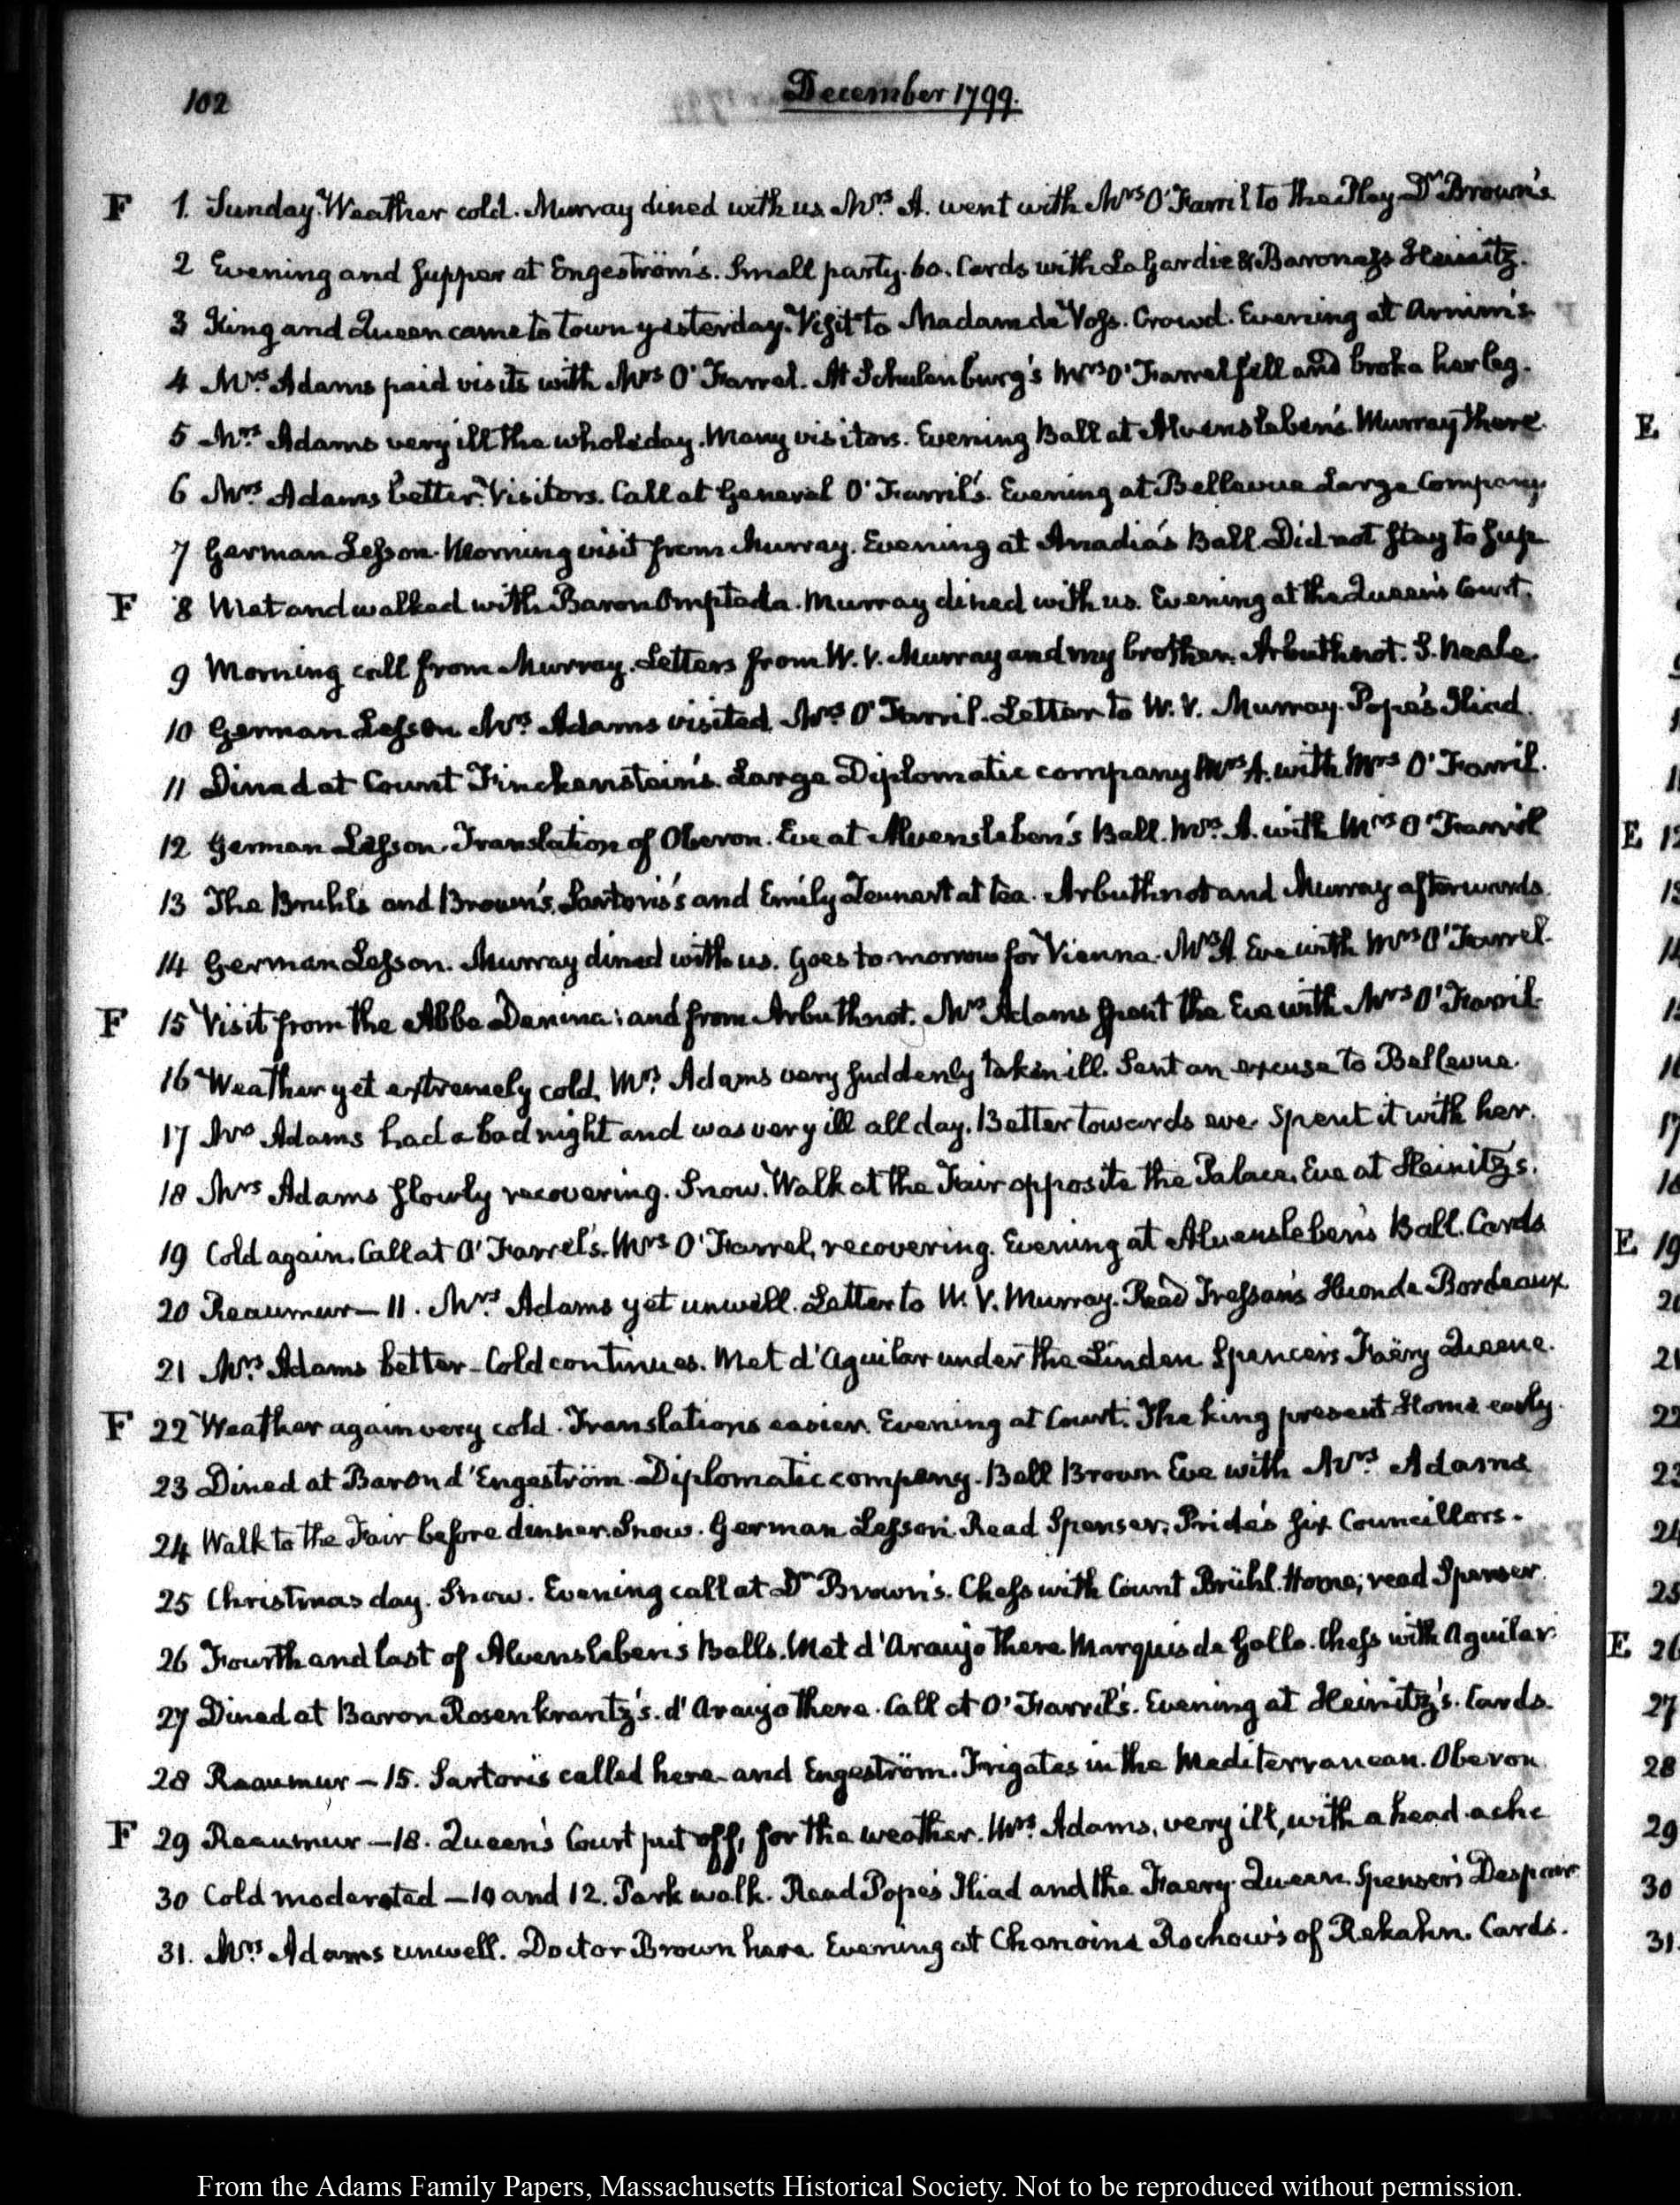 102
December 1799.
F 1. Sunday. Weather cold. Murray dined with us. Mrs. A. went with Mrs O'Farril to the Play Dr Brown's
2 Evening and Supper at Engeström's. Small party. 60. Cards with LaGardie & Baroness Heinitz.
3 King and Queen came to town yesterday. Visit to Madam de Voss. Crowd. Evening at Arnim's
4 Mrs. Adams paid visits with Mrs O'Farrel. At Schulenburg's Mrs O'Farrel fell and broke her leg.
5 Mrs. Adams very ill the whole day. Many visitors. Evening Ball at Alvensleben's. Murray there.
E
6 Mrs Adams better. Visitors. Call at General O'Farril's. Evening at Bellevue Large Company
7 German Lesson. Morning visit from Murray. Evening at Anadia's Ball. Did not stay to sup
F 8 Met and walked with Baron Ompteda. Murray dined with us. Evening at the Queen's Court.
9 Morning call from Murray. Letters from W. V. Murray and my brother. Arbuthnot. S. Neale.
10 German Lesson. Mrs. Adams visited Mrs O'Farril. Letter to W. V. Murray. Pope's Iliad.
11 Dined at Count Finckenstein's. Large Diplomatic company Mrs A. with Mrs O'Farril.
12 German Lesson. Translation of Oberon. Eve at Alvensleben's Ball. Mrs. A. with Mrs O'Farril
E 12
13 The Bruhls and Brown's, Sartoris's and Emily at tea. Arbuthnot and Murray afterwards.
14 German Lesson. Murray dined with us. Goes to morrow for Vienna. Mrs A Eve with Mrs O'Farrel.
F 15 Visit from the Abbe Denina: and from Arbuthnot. Mrs Adams spent the Eve with Mrs O'Farril
16 Weather yet extremely cold. Mrs. Adams very suddenly taken ill. Sent an excuse to Bellevue.
17 Mrs Adams had a bad night and was very ill all day. Better towards eve. Spent it with her.
18 Mrs Adams slowly recovering. Snow. Walk at the Fair opposite the Palace. Eve at Heinitz's.
19 Cold again. Call at O'Farrel's. Mrs O'Farrel, recovering. Evening at Alvensleben's Ball. Cards
E 19
20 Reaumur—11. Mrs. Adams yet unwell. Letter to W. V. Murray. Read Tressan's Huon de Bordeaux.
21 Mrs. Adams better—Cold continues. Met d'Aguilar under the Linden Spencer's Faëry Queene.
F 22 Weather again very cold. Translations easier. Evening at Court. The king present. Home early.
23 Dined at Baron d'Engeström. Diplomatic company. Ball Brown Eve with Mrs. Adams
24 Walk to the Fair before dinner. Snow. German Lesson. Read Spenser, Pride's six Councillors.
25 Christmas day. Snow. Evening call at Dr Brown's. Chess with Count Brühl. Home; read Spenser.
26 Fourth and last of Alvensleben's Balls. Met d'Araujo there Marquis de Gallo. Chess with Aguilar.
E 26
27 Dined at Baron Rosenkrantz's. d'Araujo there. Call at O'Farril's. Evening at Heinitz's. Cards.
28 Reaumur—15. Sartoris called here and Engeström. Frigates in the Mediterranean. Oberon
F 29 Reaumur—18. Queen's Court put off, for the weather. Mrs. Adams, very ill, with a head-ache
30 Cold moderated—10 and 12. Park walk. Read Pope's Iliad and the Faery Queen. Spenser's Despair
31. Mrs. Adams unwell. Doctor Brown here. Evening at Chanoine Rochow's of Rekahn. Cards.
From the Adams Family Papers, Massachusetts Historical Society. Not to be reproduced without permission.